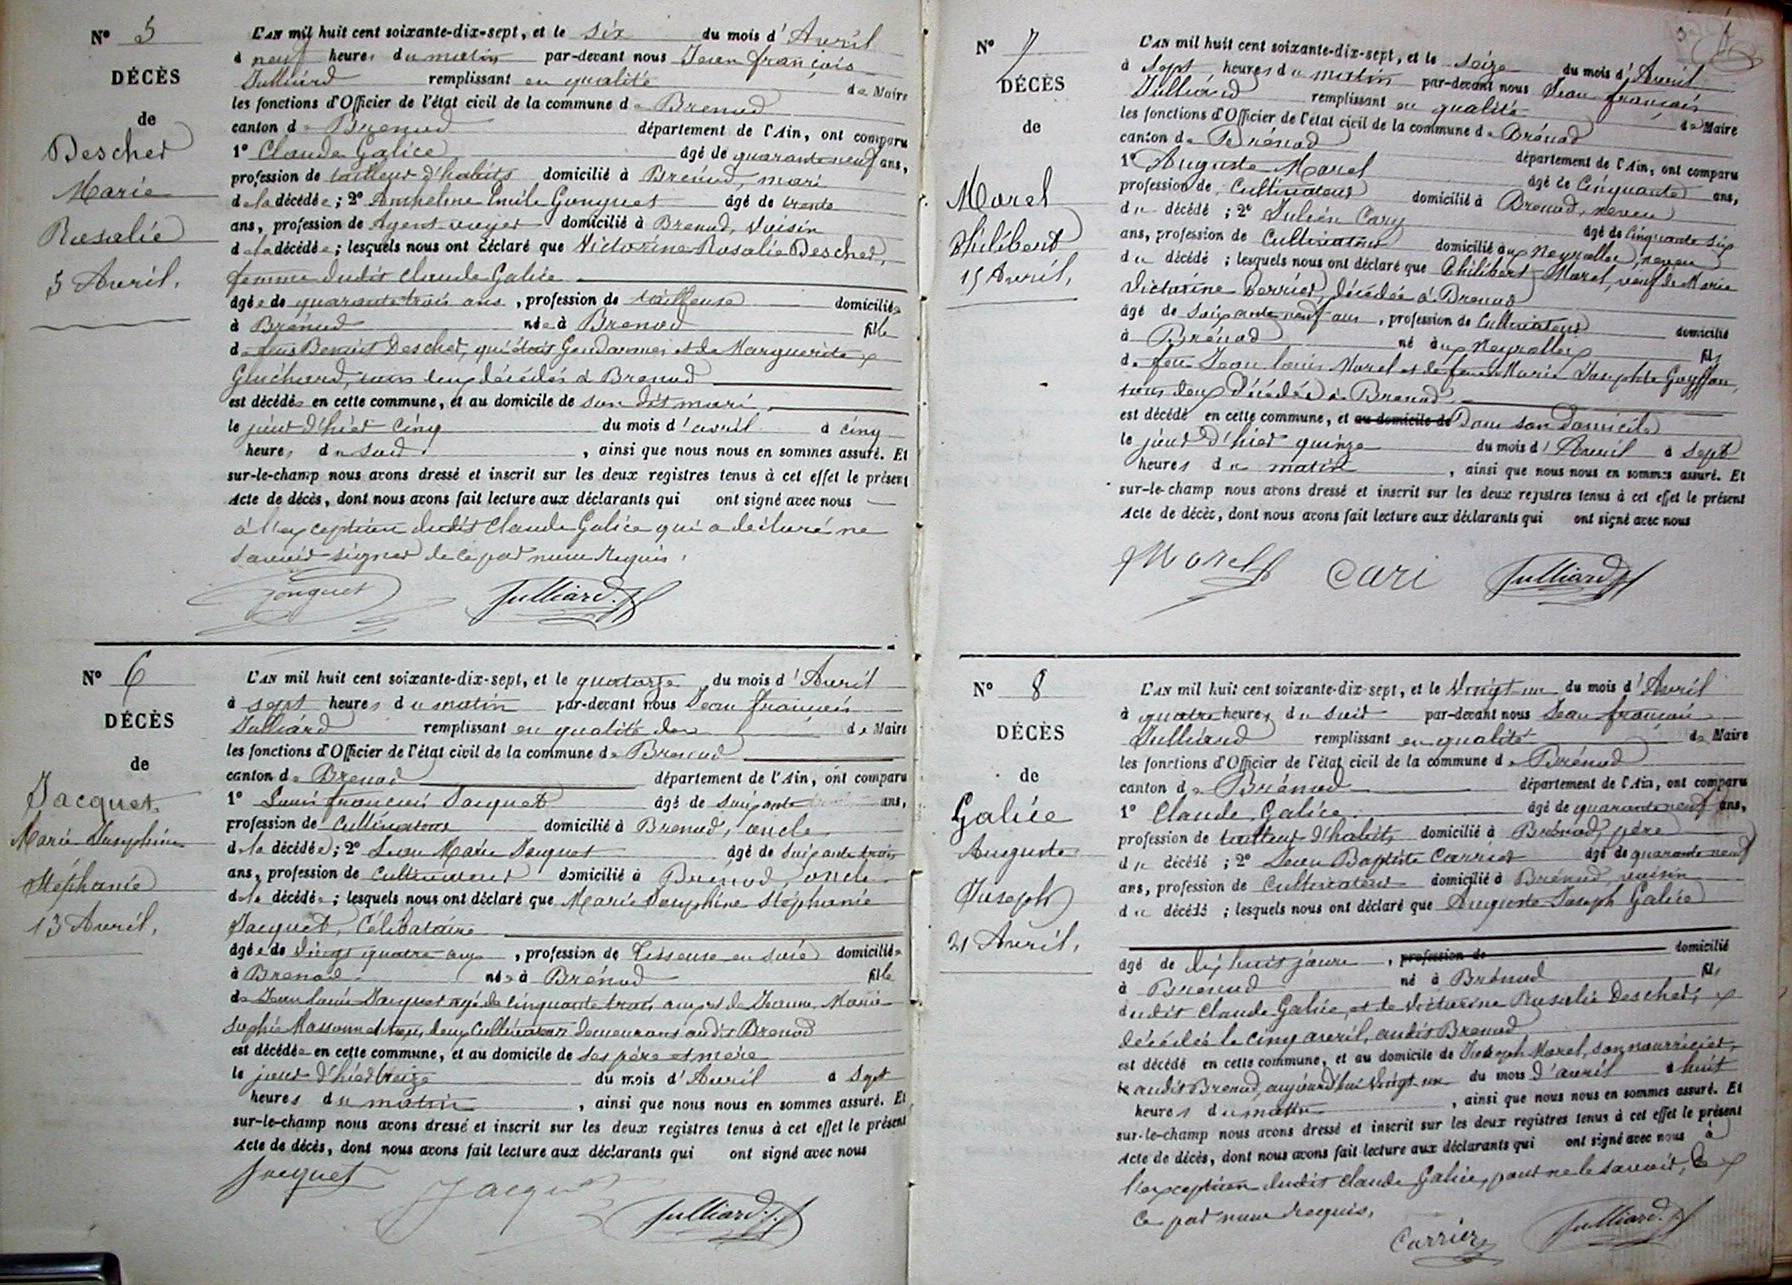 N° 5
DÉCÈS
de
Descher
Marie
Rosalie
5 Avril.
L'AN mil huit cent soixante-dix-sept, et le six du mois d'Avril
à neuf heures du matin par-devant nous Jean françois
Julliard remplissant en qualité de Maire
les fonctions d'Officier de l'état civil de la commune de Brenod
canton de Brenod département de l'Ain, ont comparu
1° Claude Galice âgé de quarante neuf ans,
profession de tailleur d'habits domicilié à Brénod, mari
de la décédée; 2° Emile Gonguet âgé de trente
ans, profession de Agent-voyer domicilié à Brenod, Voisin
de la décédée; lesquels nous ont déclaré que Victorine Rosalie Descher,
femme dudit Claude Galice
âgée de quarante trois ans, profession de tailleuse domiciliée
à Brénod née à Brenod fille
de feus Benoit Descher, qui était Gendarme, et de Marguerite
Gluchard, tous deux décédés à Brenod
est décédée en cette commune, et au domicile de son dit mari
le jour d'hier cinq du mois d'avril à cinq
heures du soir, ainsi que nous nous en sommes assuré. Et
sur-le-champ nous avons dressé et inscrit sur les deux registres tenus à cet effet le présent
Acte de décès, dont nous avons fait lecture aux déclarants qui ont signé avec nous
à l'exception dudit Claude Galice qui a déclaré ne
savoir signer de ce par nous requis.
Gonguet Julliard. J.f
N° 6
DÉCÈS
de
Jacquet
Marie Josephine
Stéphanie
13 Avril.
L'AN mil huit cent soixante-dix-sept, et le quatorze du mois d'Avril
à sept heures du matin par-devant nous Jean françois
Julliard remplissant en qualité de de Maire
les fonctions d'Officier de l'état civil de la commune de Brenod
canton de Brenod département de l'Ain, ont comparu
1° Louis françois Jacquet âgé de soixante ans,
profession de Cultivateur domicilié à Brenod, oncle
de la décédée; 2° Jean Marie Jacquet âgé de soixante trois
ans, profession de Cultivateur domicilié à Brenod oncle
de la décédée; lesquels nous ont déclaré que Marie Josephine Stéphanie
Jacquet, Célibataire
âgée de Vingt quatre ans, profession de Tisseuse en soie domiciliée
à Brenod née à Brénod fille
de Jean louis Jacquet agé de cinquante trois ans et de Jeanne Marie
Sophie Massonnet, tous deux Cultivateurs demeurans audit Brenod
est décédée en cette commune, et au domicile de ses père et mère
le jour d'hier treize du mois d'Avril à Sept
heures du matin, ainsi que nous nous en sommes assuré. Et
sur-le-champ nous avons dressé et inscrit sur les deux registres tenus à cet effet le présent
Acte de décès, dont nous avons fait lecture aux déclarants qui ont signé avec nous
Jacquet Jacquet Julliard. J.f
N° 7
DÉCÈS
de
Morel
Philibert
15 Avril.
L'AN mil huit cent soixante-dix-sept, et le seize du mois d'Avril
à sept heures du matin par-devant nous Jean françois
Julliard remplissant en qualité de Maire
les fonctions d'Officier de l'état civil de la commune de Brénod
canton de Brénod département de l'Ain, ont comparu
1° Auguste Morel âgé de Cinquante ans,
profession de Cultivateur domicilié à Brenod, neveu
du décédé; 2° Julien Cary âgé de Cinquante six
ans, profession de Cultivateur domicilié aux Neyrolles, neveu
du décédé; lesquels nous ont déclaré que Philibert Morel, veuf de Marie
Victorine Perrier, décédée à Brenod
âgé de Soixante neuf ans, profession de Cultivateur domicilié
à Brénod né aux Neyrolles fils
de feu Jean louis Morel et de feue Marie Josephte Goyffon,
tous deux décédés à Brenod
est décédé en cette commune, et au domicile de Dans son domicile
le jour d'hier quinze du mois d'Avril à Sept
heures du matin, ainsi que nous nous en sommes assuré. Et
sur-le-champ nous avons dressé et inscrit sur les deux registres tenus à cet effet le présent
Acte de décès, dont nous avons fait lecture aux déclarants qui ont signé avec nous
Morel Cari Julliard. J.f
N° 8
DÉCÈS
de
Galice
Auguste
Joseph
21 Avril.
L'AN mil huit cent soixante-dix-sept, et le Vingt un du mois d'Avril
à quatre heures du soir par-devant nous Jean françois
Julliard remplissant en qualité de Maire
les fonctions d'Officier de l'état civil de la commune de Brénod
canton de Brénod département de l'Ain, ont comparu
1° Claude Galice âgé de quarante neuf ans,
profession de tailleur d'habits domicilié à Brénod, père
du décédé; 2° Jean Baptiste Carrier âgé de quarante neuf
ans, profession de Cultivateur domicilié à Brénod, voisin
du décédé; lesquels nous ont déclaré que Auguste Joseph Galice
âgé de dix huit jours, profession de domicilié
à Brenod né à Brénod fils
dudit Claude Galice, et de Victorine Rosalie Descher,
décédée le cinq avril, audit Brenod
est décédé en cette commune, et au domicile de Joseph Morel, son nourricier,
le audit Brenod, aujourd'hui Vingt un du mois d'avril à huit
heures du matin, ainsi que nous nous en sommes assuré. Et
sur-le-champ nous avons dressé et inscrit sur les deux registres tenus à cet effet le présent
Acte de décès, dont nous avons fait lecture aux déclarants qui ont signé avec nous à
l'exception dudit Claude Galice, pour ne le savoir, de
ce par nous requis.
Carrier Julliard. J.f